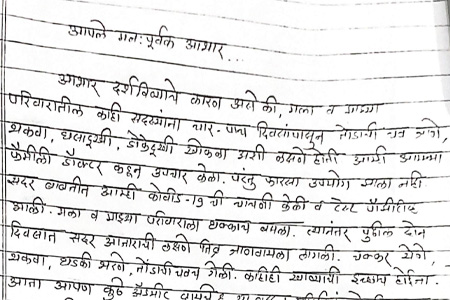 आपले मनःपूर्वक आभार...
आभार दर्शविण्याचे कारण असे की, मला व माझ्या
परिवारातील काही सदस्यांना चार-पाच दिवसांपासून तोंडाची चव जाणे,
थकवा, घसादुखी, डोकेदुखी खोकला अशी लक्षणे होती आम्ही आमच्या
फॅमीली डॉक्टर कडून उपचार केला. परंतु फारसा उपयोग झाला नाही.
सदर बाबतीत आम्ही कोवीड-19 ची चाचणी केली व टेस्ट पॉझीटिव्ह
आली. मला व माझ्या परिवाराला धक्काच बसला. त्यानंतर पुढील दोन
दिवसात सदर आजाराची लक्षणे तिव्र जाणवायला लागली. चक्कर येणे,
थकवा, थंडी भरणे, तोंडाची चवच गेली. काहीही खाण्याची इच्छाच होईना.
आता आपण कुठे अॅडमीट